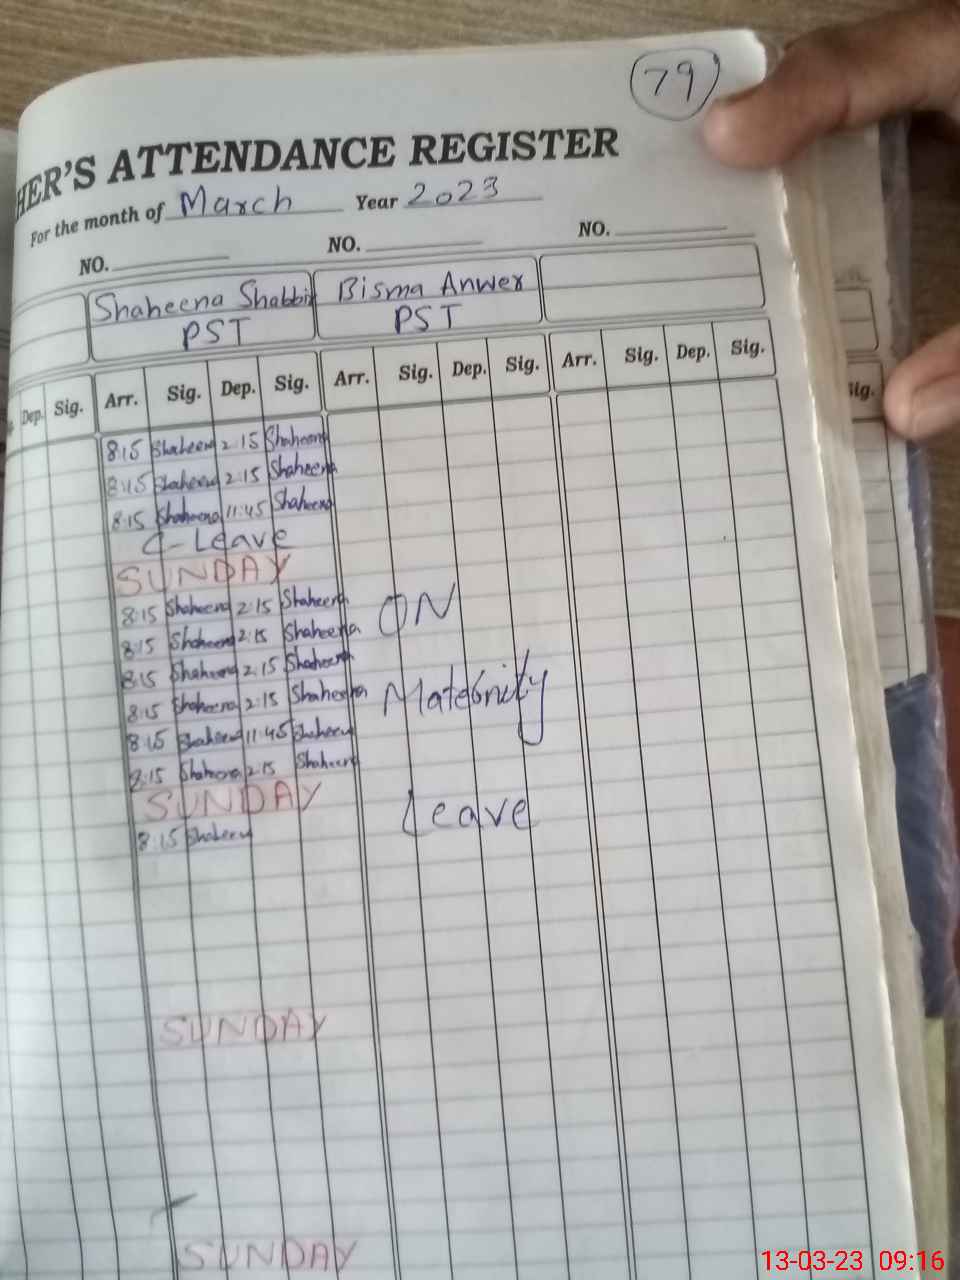 79
HER'S ATTENDANCE REGISTER
For the month of March Year 2023
NO. NO. NO.
Shaheena Shabbir Bisma Anwer
PST PST
Dep. Sig. Arr. Sig. Dep. Sig. Arr. Sig. Dep. Sig. Arr. Sig. Dep. Sig. Sig.
8:15 Shaheena 2:15 Shaheena
8:15 Shaheena 2:15 Shaheena
8:15 Shaheena 11:45 Shaheena
C-Leave
SUNDAY
8:15 Shaheena 2:15 Shaheena
ON
8:15 Shaheena 2:15 Shaheena
8:15 Shaheena 2:15 Shaheena
8:15 Shaheena 2:15 Shaheena
Maternity
8:15 Shaheena 11:45 Shaheena
8:15 Shaheena 2:15 Shaheena
SUNDAY
Leave
8:15 Shaheena
SUNDAY
SUNDAY
13-03-23 09:16